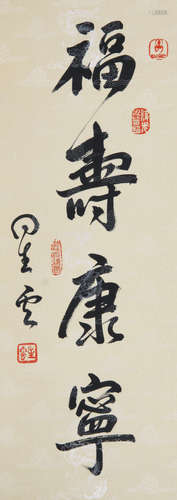 福壽康寧
星雲